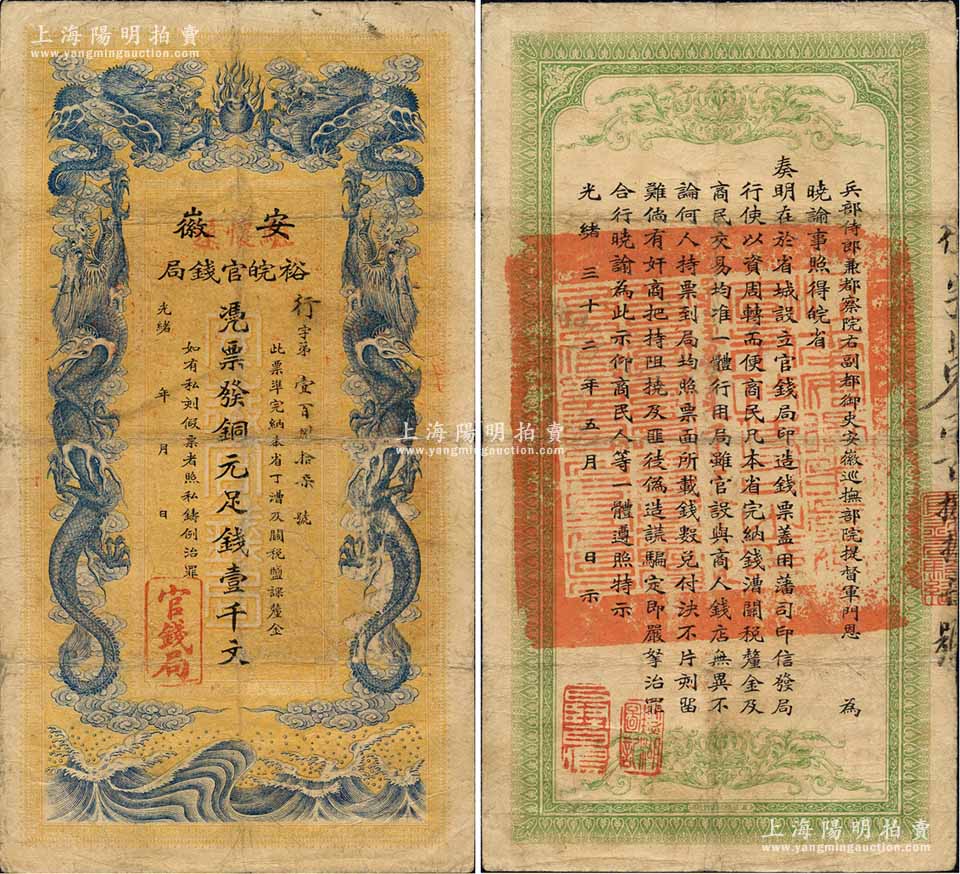 上海陽明拍賣
www.yangmingauction.com
安徽
裕皖官錢局
行字第壹百 拾柒號
此票準完納本省丁漕及關稅鹽課釐金
憑票發銅元足錢壹千文
如有私刻假票者照私鑄例治罪
光緒 年 月 日
官錢局
上海陽明拍賣
www.yangmingauction.com
上海陽明拍賣
www.yangmingauction.com
兵部侍郎兼都察院右副都御史安徽巡撫部院提督軍門恩 為
曉諭事照得皖省
奏明在於省城設立官錢局印造錢票蓋用藩司印信發局
行使以資周轉而便商民凡本省完納錢漕關稅釐金及
商民交易均准一體行用局雖官設與商人錢店無異不
論何人持票到局均照票面所載錢數兌付決不片刻留
難倘有奸商把持阻撓及匪徒偽造謊騙定即嚴拏治罪
合行曉諭為此示仰商民人等一體遵照特示
光緒三十二年五月 日示
上海陽明拍賣
www.yangmingauction.com